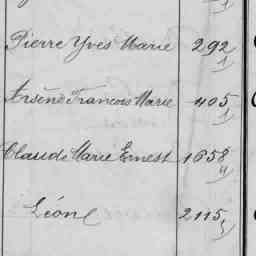 Pierre Yves Marie 292
1
Arsène François Marie 405
1
Claude Marie Ernest 1658
11
Léone 2115